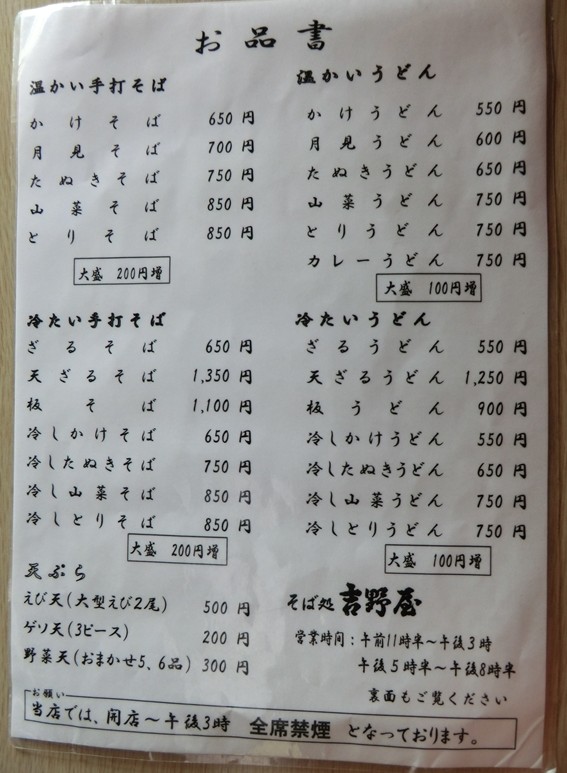 お品書
温かい手打そば
かけそば 650円
月見そば 700円
たぬきそば 750円
山菜そば 850円
とりそば 850円
大盛 200円増
温かいうどん
かけうどん 550円
月見うどん 600円
たぬきうどん 650円
山菜うどん 750円
とりうどん 750円
カレーうどん 750円
大盛 100円増
冷たい手打そば
ざるそば 650円
天ざるそば 1,350円
板そば 1,100円
冷しかけそば 650円
冷したぬきそば 750円
冷し山菜そば 850円
冷しとりそば 850円
大盛 200円増
冷たいうどん
ざるうどん 550円
天ざるうどん 1,250円
板うどん 900円
冷しかけうどん 550円
冷したぬきうどん 650円
冷し山菜うどん 750円
冷しとりうどん 750円
大盛 100円増
天ぷら
えび天(大型えび2尾) 500円
ゲソ天(3ピース) 200円
野菜天(おまかせ5、6品) 300円
そば処 吉野屋
営業時間:午前11時半~午後3時
午後5時半~午後8時半
裏面もご覧ください
お願い
当店では、開店~午後3時 全席禁煙 となっております。